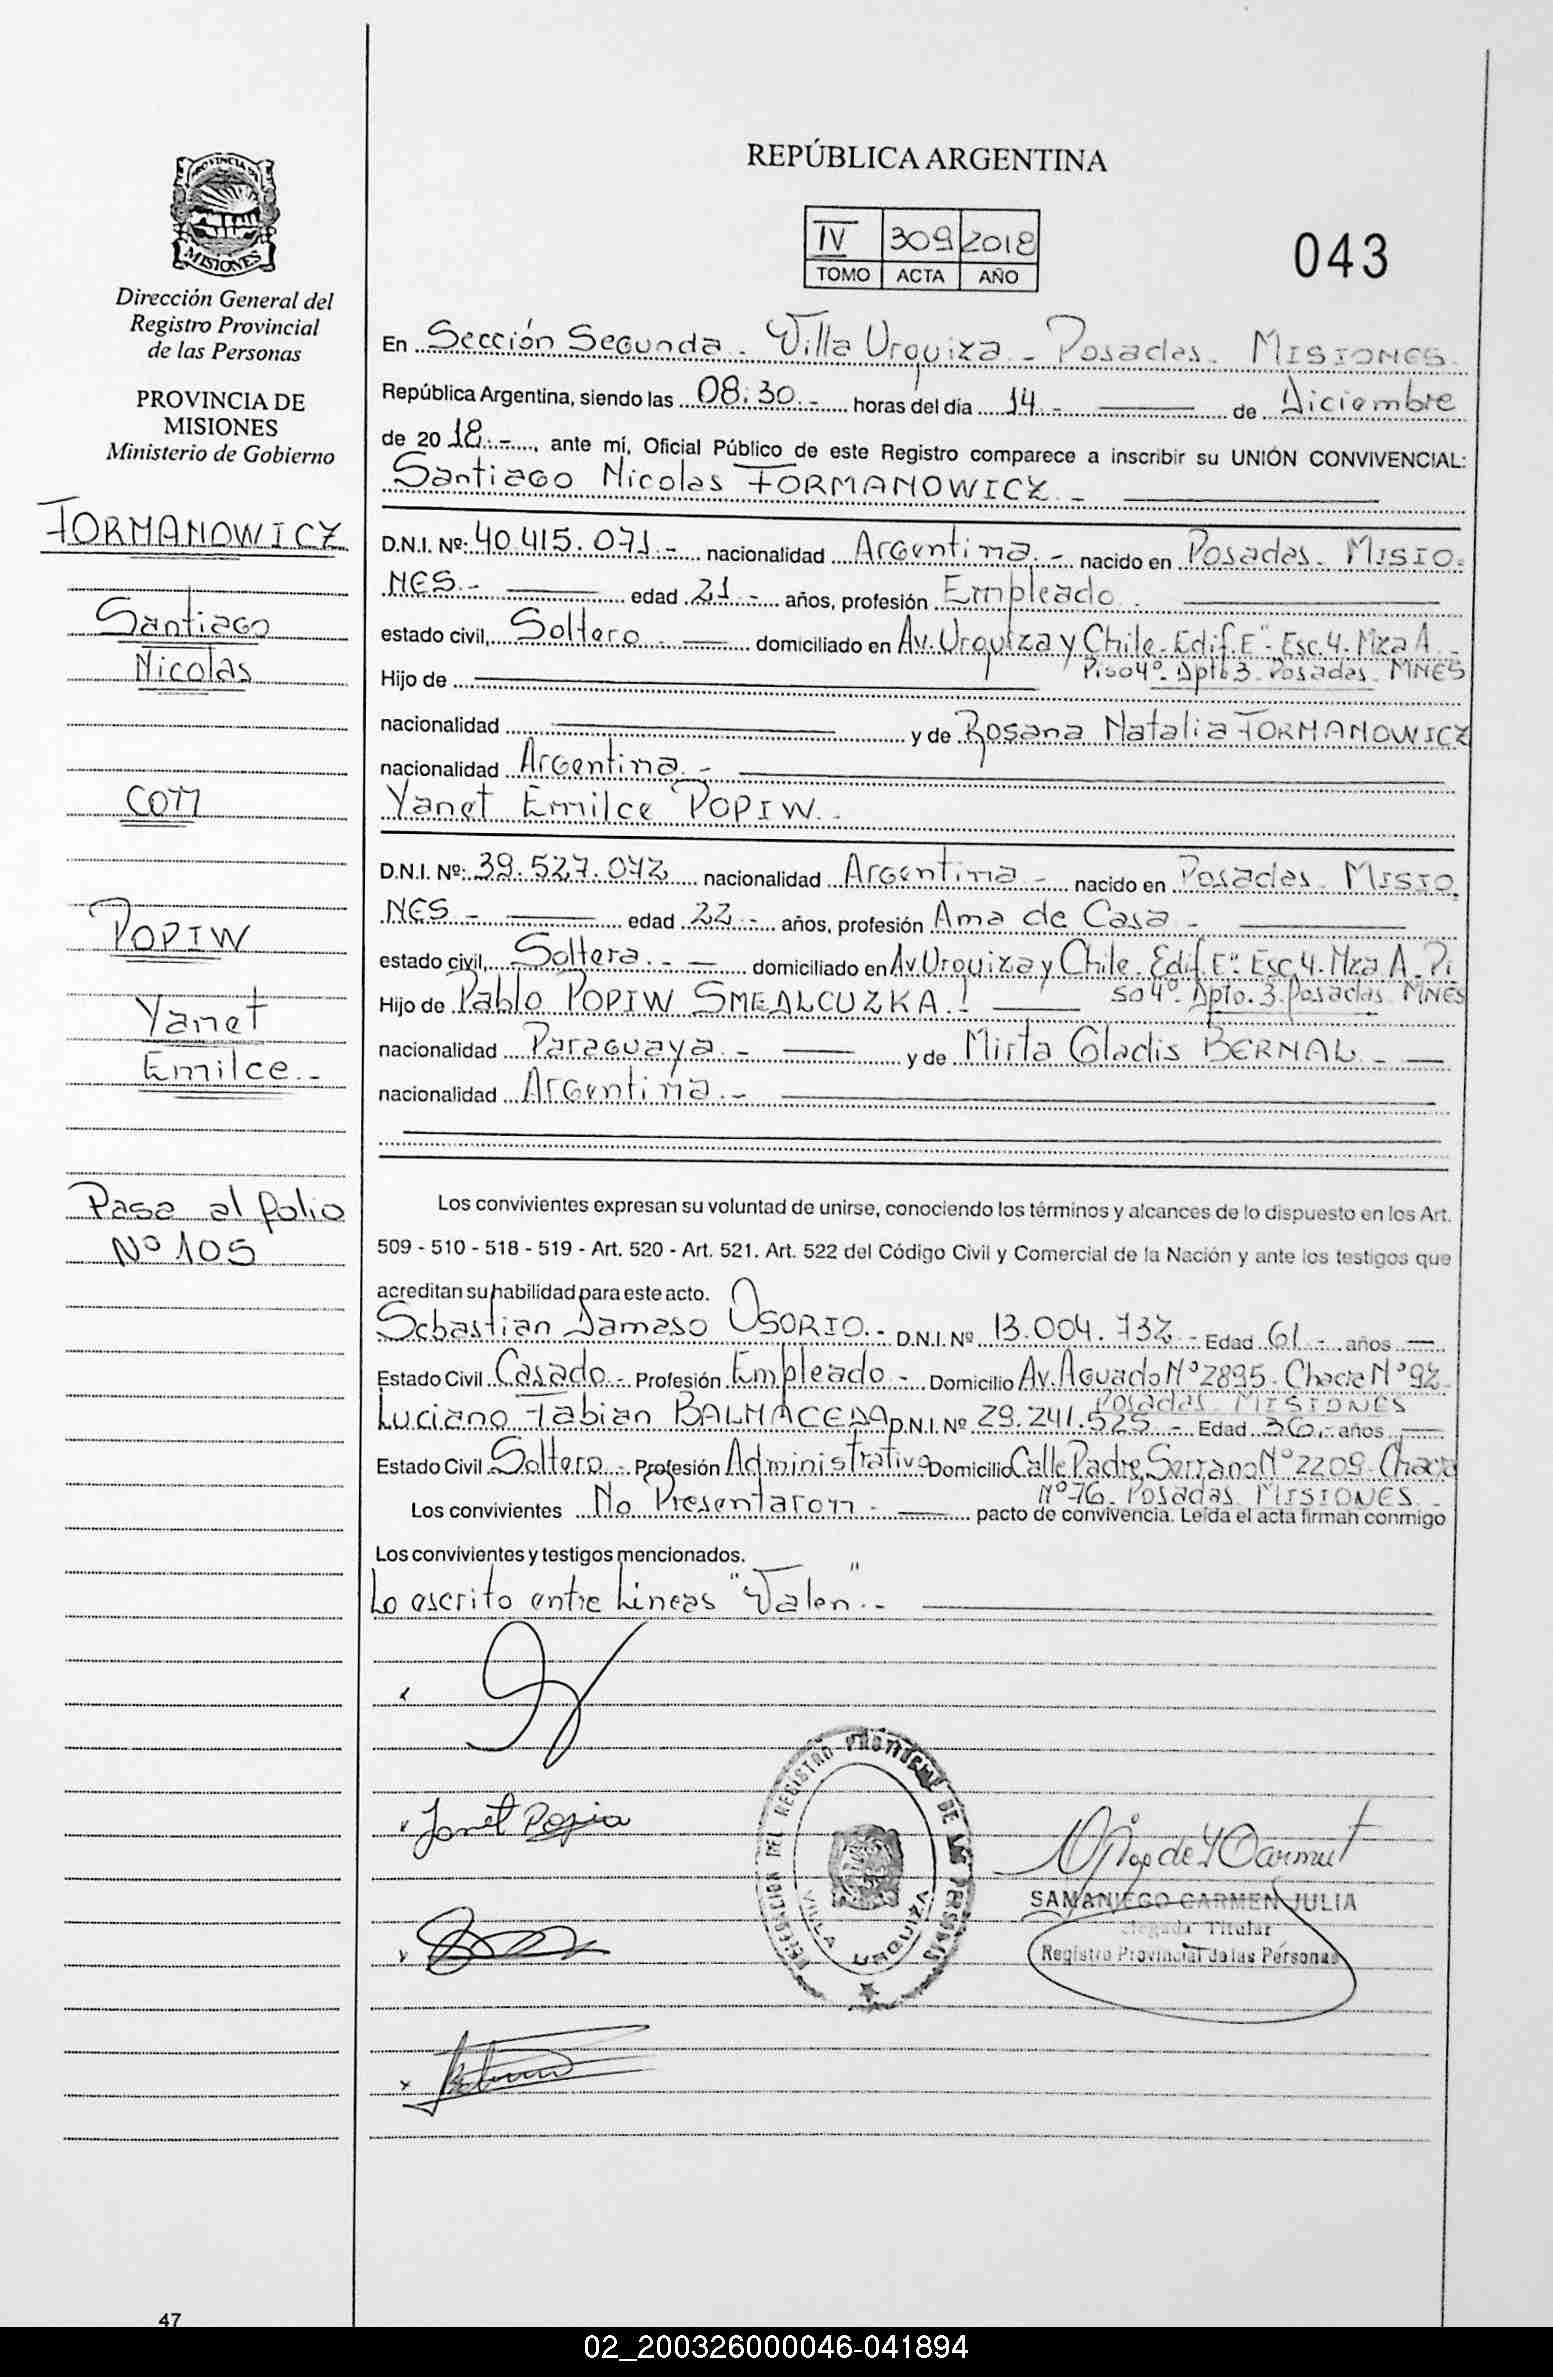 PROVINCIA DE
MISIONES
Dirección General del
Registro Provincial
de las Personas
PROVINCIA DE
MISIONES
Ministerio de Gobierno
FORMANOWICZ
Santiago
Nicolas
con
POPIW
Yanet
Emilce.-
Pasa al folio
Nº 105
47
REPÚBLICA ARGENTINA
IV 309 2018
TOMO ACTA AÑO
043
En Sección Segunda - Villa Urquiza - Posadas - MISIONES
República Argentina, siendo las 08:30.- horas del día 14.- de Diciembre
de 2018.-, ante mí, Oficial Público de este Registro comparece a inscribir su UNIÓN CONVIVENCIAL:
Santiago Nicolas FORMANOWICZ.-
D.N.I. Nº: 40.415.071.- nacionalidad Argentina.- nacido en Posadas - MISIO-
NES.- edad 21.- años, profesión Empleado.
estado civil, Soltero.- domiciliado en Av. Urquiza y Chile - Edif. E" - Esc. 4 - Mza A -
Piso 4º - Dpto 3 - Posadas - MNES
Hijo de
nacionalidad y de Rosana Natalia FORMANOWICZ
nacionalidad Argentina.-
Yanet Emilce POPIW.-
D.N.I. Nº: 39.527.042 nacionalidad Argentina.- nacido en Posadas - MISIO-
NES.- edad 22.- años, profesión Ama de Casa -
estado civil, Soltera.- domiciliado en Av. Urquiza y Chile - Edif. E" - Esc. 4 - Mza A - Pi
so 4º - Dpto. 3 - Posadas MNES
Hijo de Pablo POPIW SMEALCUZKA.
nacionalidad Paraguaya.- y de Mirta Gladis BERNAL.-
nacionalidad Argentina.-
Los convivientes expresan su voluntad de unirse, conociendo los términos y alcances de lo dispuesto en los Art.
509 - 510 - 518 - 519 - Art. 520 - Art. 521. Art. 522 del Código Civil y Comercial de la Nación y ante los testigos que
acreditan su habilidad para este acto.
Sebastian Damaso OSORIO.- D.N.I. Nº 13.004.732.- Edad 61.- años
Estado Civil Casado.- Profesión Empleado.- Domicilio Av. Aguado Nº 2895 - Chacra Nº 92
Posadas - MISIONES
Luciano Fabian BALMACEDA D.N.I. Nº 29.241.525.- Edad 36.- años
Estado Civil Soltero.- Profesión Administrativo Domicilio Calle Padre Serrano Nº 2209 - Chacra
Nº 76 - Posadas MISIONES -
Los convivientes No Presentaron.- pacto de convivencia. Leída el acta firman conmigo
Los convivientes y testigos mencionados.
Lo escrito entre Lineas "Valen".-
DELEGACION DEL REGISTRO PROVINCIAL DE LAS PERSONAS
VILLA URQUIZA
SAMANIEGO CARMEN JULIA
Delegada Titular
Registro Provincial de las Personas
02_200326000046-041894